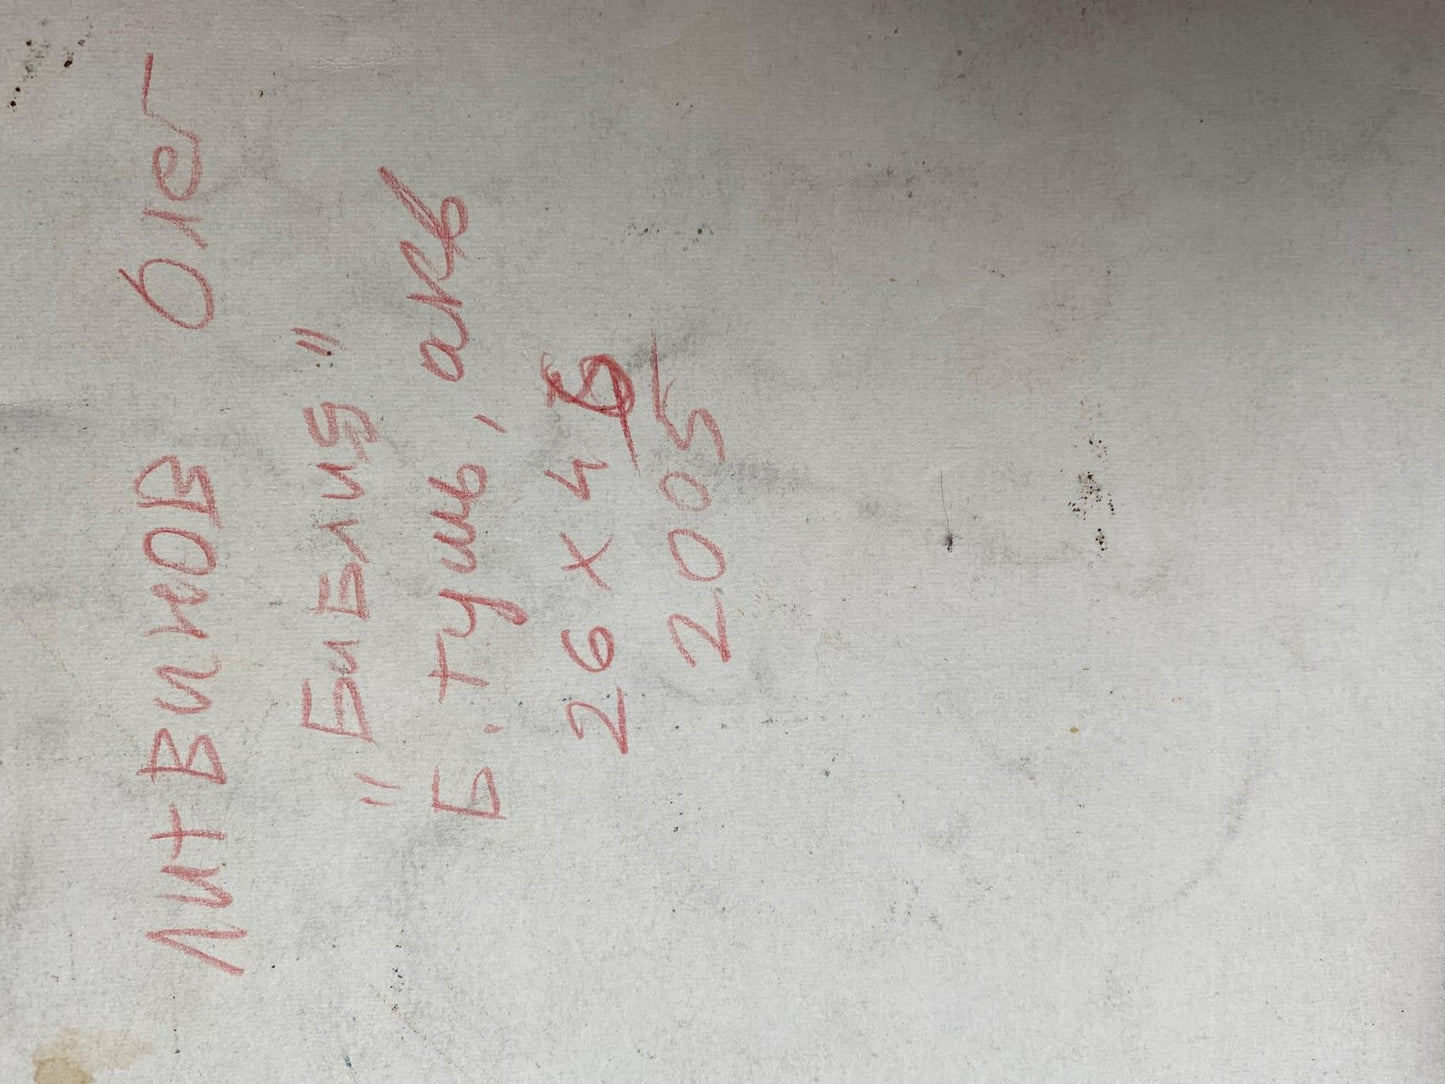 ЛитВиНОВ Олег
"БиБлия"
Б. тушь, акв
26 х 45
2005